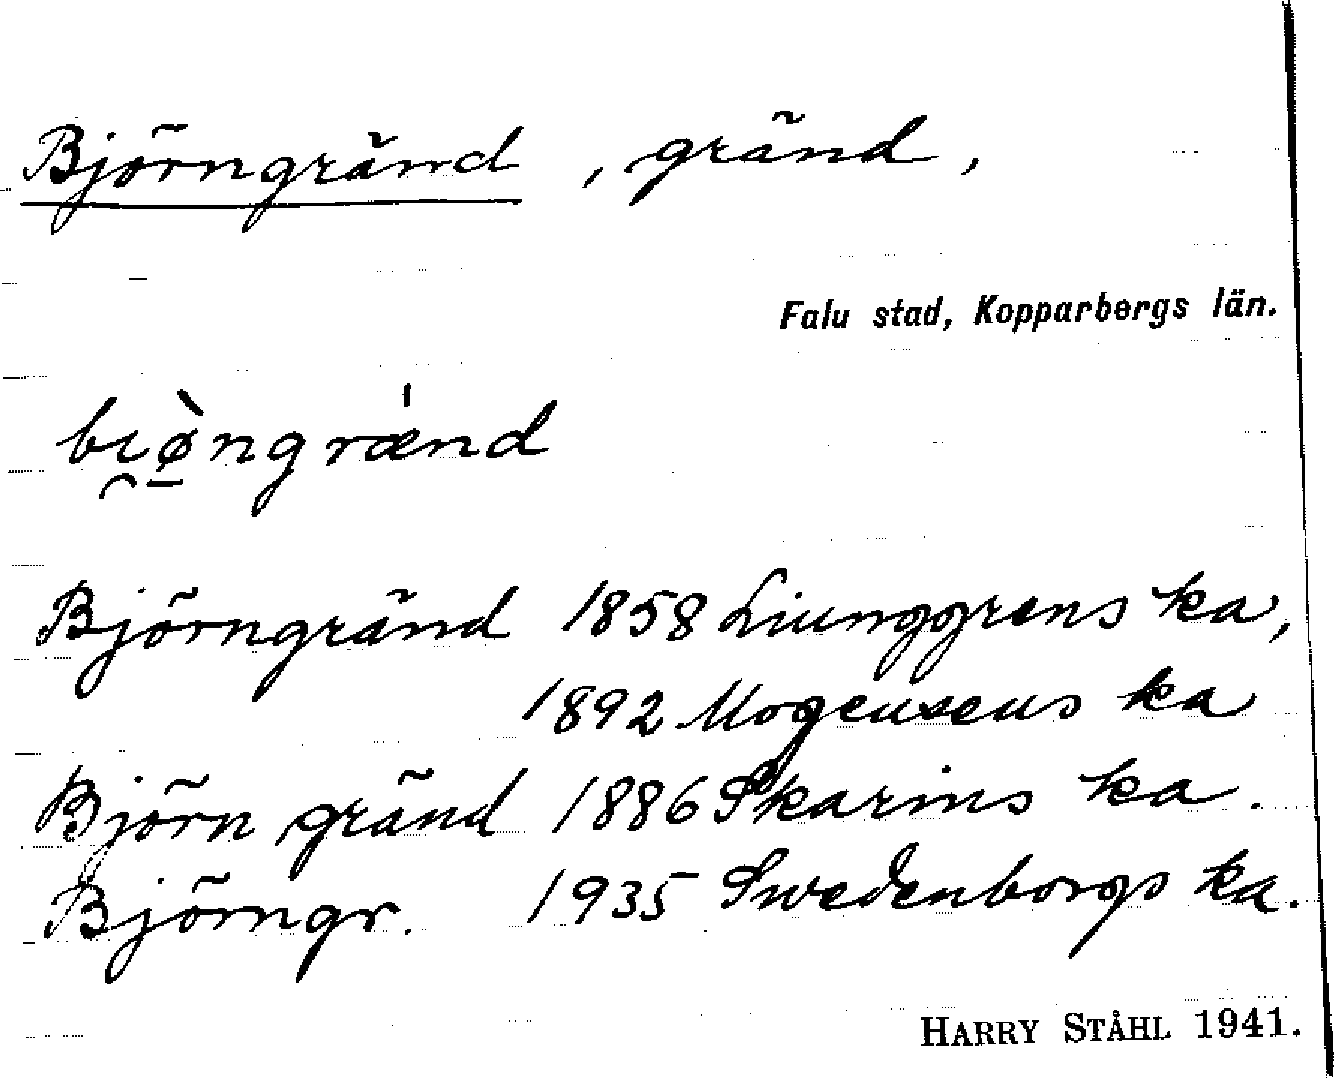 Björngränd, gränd,
Falu stad, Kopparbergs län.
bɩ̯ø̠̀ngrǽnd
Björngränd 1858 Liunggrens ka,
1892 Mogensens ka
Björn gränd 1886 Skarins ka.
Björngr. 1935 Swedenborgs ka.
HARRY STÅHL 1941.